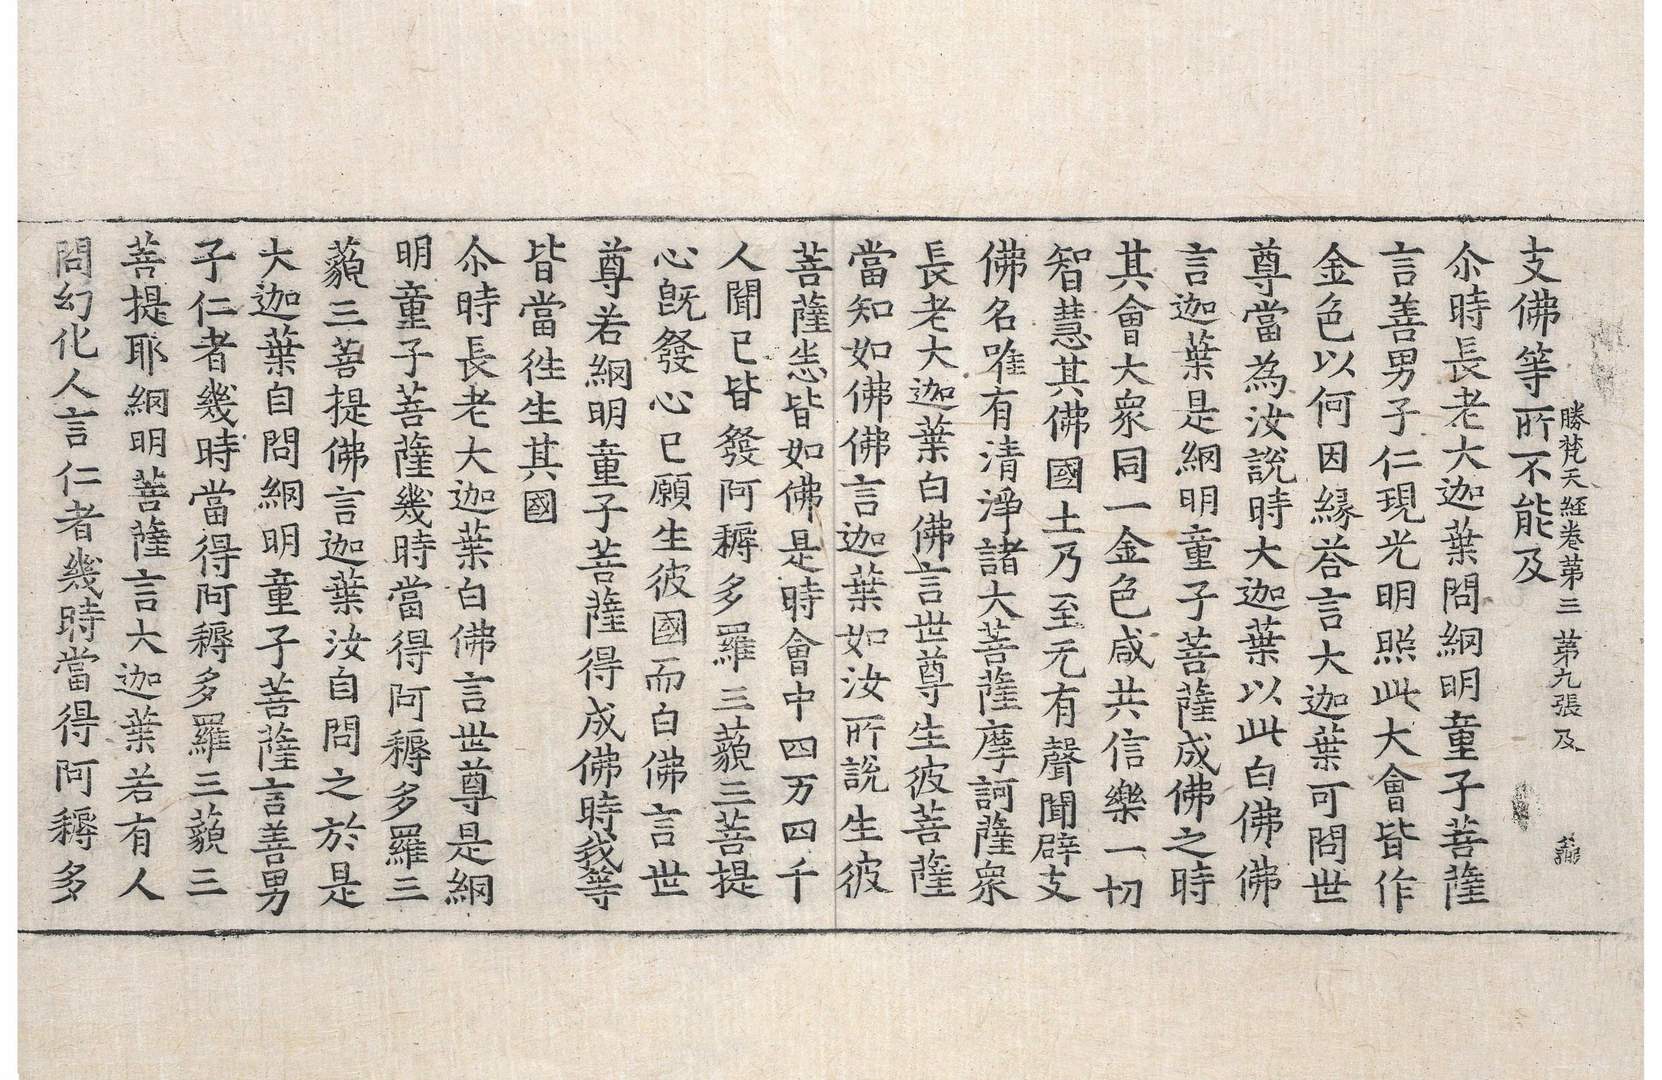 支佛等所不能及
勝梵天經卷第三 第九張 及
尒時長老大迦葉問網明童子菩薩
言善男子仁現光明照此大會皆作
金色以何因緣荅言大迦葉可問世
尊當為汝說時大迦葉以此白佛佛
言迦葉是網明童子菩薩成佛之時
其會大衆同一金色咸共信樂一切
智慧其佛國土乃至无有聲聞辟支
佛名唯有清淨諸大菩薩摩訶薩衆
長老大迦葉白佛言世尊生彼菩薩
當知如佛佛言迦葉如汝所說生彼
菩薩悉皆如佛是時會中四万四千
人聞已皆發阿耨多羅三藐三菩提
心旣發心已願生彼國而白佛言世
尊若網明童子菩薩得成佛時我等
皆當徃生其國
尒時長老大迦葉白佛言世尊是網
明童子菩薩幾時當得阿耨多羅三
藐三菩提佛言迦葉汝自問之於是
大迦葉自問網明童子菩薩言善男
子仁者幾時當得阿耨多羅三藐三
菩提耶網明菩薩言大迦葉若有人
問幻化人言仁者幾時當得阿耨多